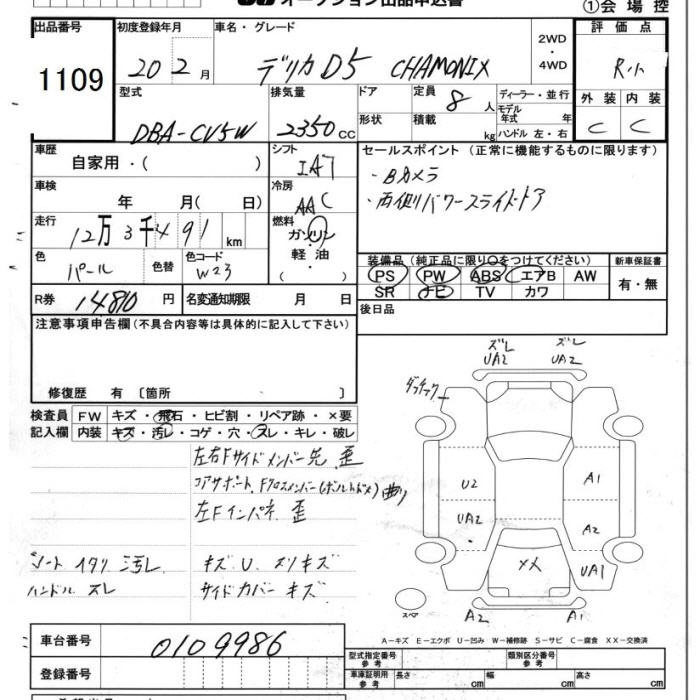 オークション出品申込書
①会場控
出品番号 初度登録年月 車名・グレード 2WD・4WD 評価点
1109 20 2月 デリカD5 CHAMONIX R小
型式 排気量 ドア 定員 8人 ディーラー・並行 外装 内装
DBA-CV5W 2350cc 形状 積載 kg モデル年式 年 ハンドル 左・右 C C
車歴 自家用・( ) シフト IAT セールスポイント (正常に機能するものに限ります)
車検 年 月( 日) 冷房 AAC ・Bカメラ
・両側パワースライドドア
走行 12万3千491km 燃料 ガソリン・軽油・
色 パール 色替 色コード W23 装備品(純正品に限り○をつけてください) 新車保証書
PS PW ABS エアB AW 有・無
SR ナビ TV カワ
R券 14810円 名変通知期限 月 日 後日品
注意事項申告欄(不具合内容等は具体的に記入して下さい)
修復歴 有〔箇所 〕
検査員記入欄 FW キズ・飛石・ヒビ割・リペア跡・×要
内装 キズ・汚レ・コゲ・穴・スレ・キレ・破レ
左右Fサイドメンバー先 歪
コアサポート、Fクロスメンバー(ボルトドメ)曲り
左Fインパネ 歪
シート イタリ 汚レ キズ U スリキズ
ハンドル スレ サイドカバー キズ
ズレ ズレ
UA2 UA2
U2 A1
UA2 A2
××
UA1
スペア
A2 A1
A-キズ E-エクボ U-凹み W-補修跡 S-サビ C-腐食 XX-交換済
車台番号 0109986
登録番号
型式指定番号 参考 類別区分番号 参考
車庫証明用 参考 長さ cm 幅 cm 高さ cm